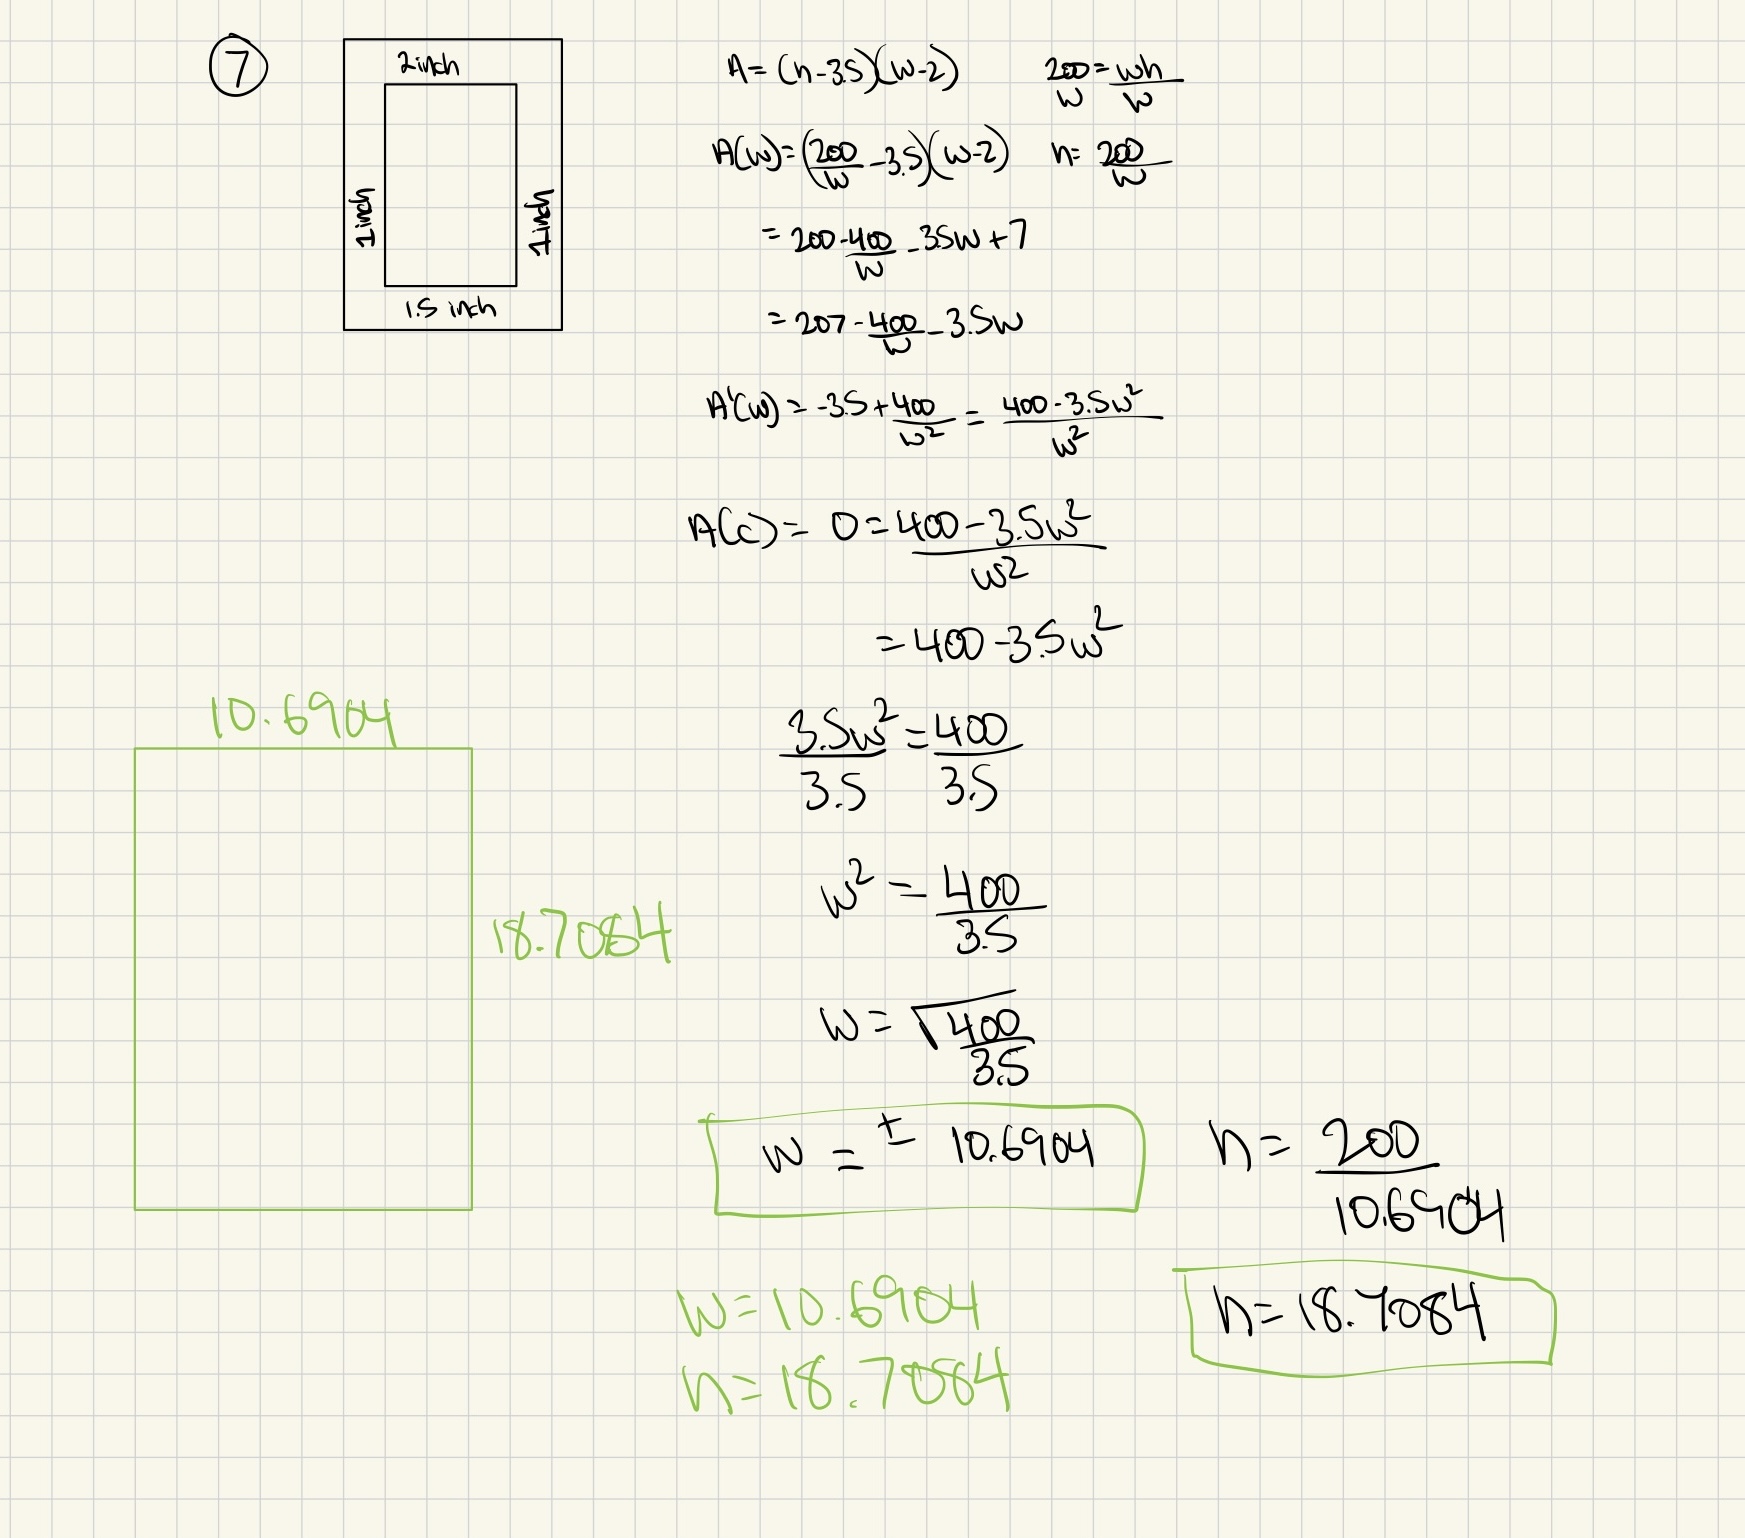 7
2 inch
1 inch
1 inch
1.5 inch
A = (h-3.5)(w-2)
200/w = wh/w
A(w) = (200/w - 3.5)(w-2)
h = 200/w
= 200 - 400/w - 3.5w + 7
= 207 - 400/w - 3.5w
A'(w) = -3.5 + 400/w² = (400 - 3.5w²)/w²
A(c) = 0 = (400 - 3.5w²)/w²
= 400 - 3.5w²
3.5w²/3.5 = 400/3.5
w² = 400/3.5
w = √(400/3.5)
w = ± 10.6904
h = 200/10.6904
h = 18.7084
10.6904
18.7084
w = 10.6904
h = 18.7084